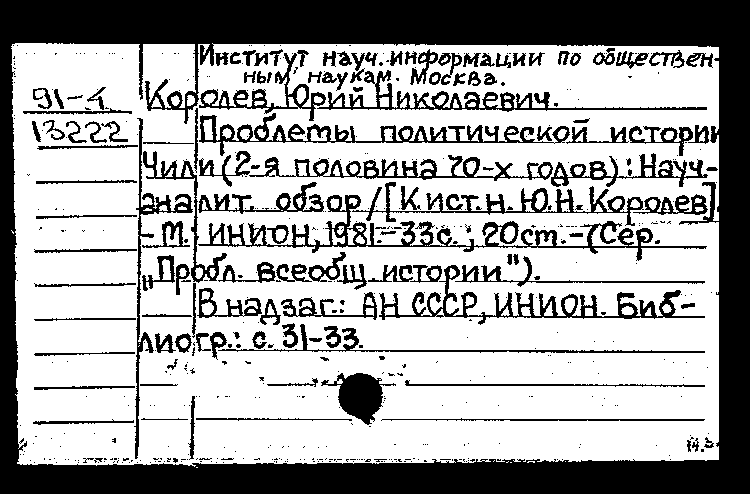 Институт науч. информации по обществен-
ным наукам. Москва.
91-4
13222
Королев, Юрий Николаевич.
Проблемы политической истории
Чили (2-я половина 70-х годов) : Науч.-
аналит. обзор / [К.ист.н. Ю.Н. Королев].
- М.: ИНИОН, 1981.-33с. ; 20см. -(Сер.
"Пробл. всеобщ. истории").
В надзаг.: АН СССР, ИНИОН. Биб-
лиогр.: с. 31-33.